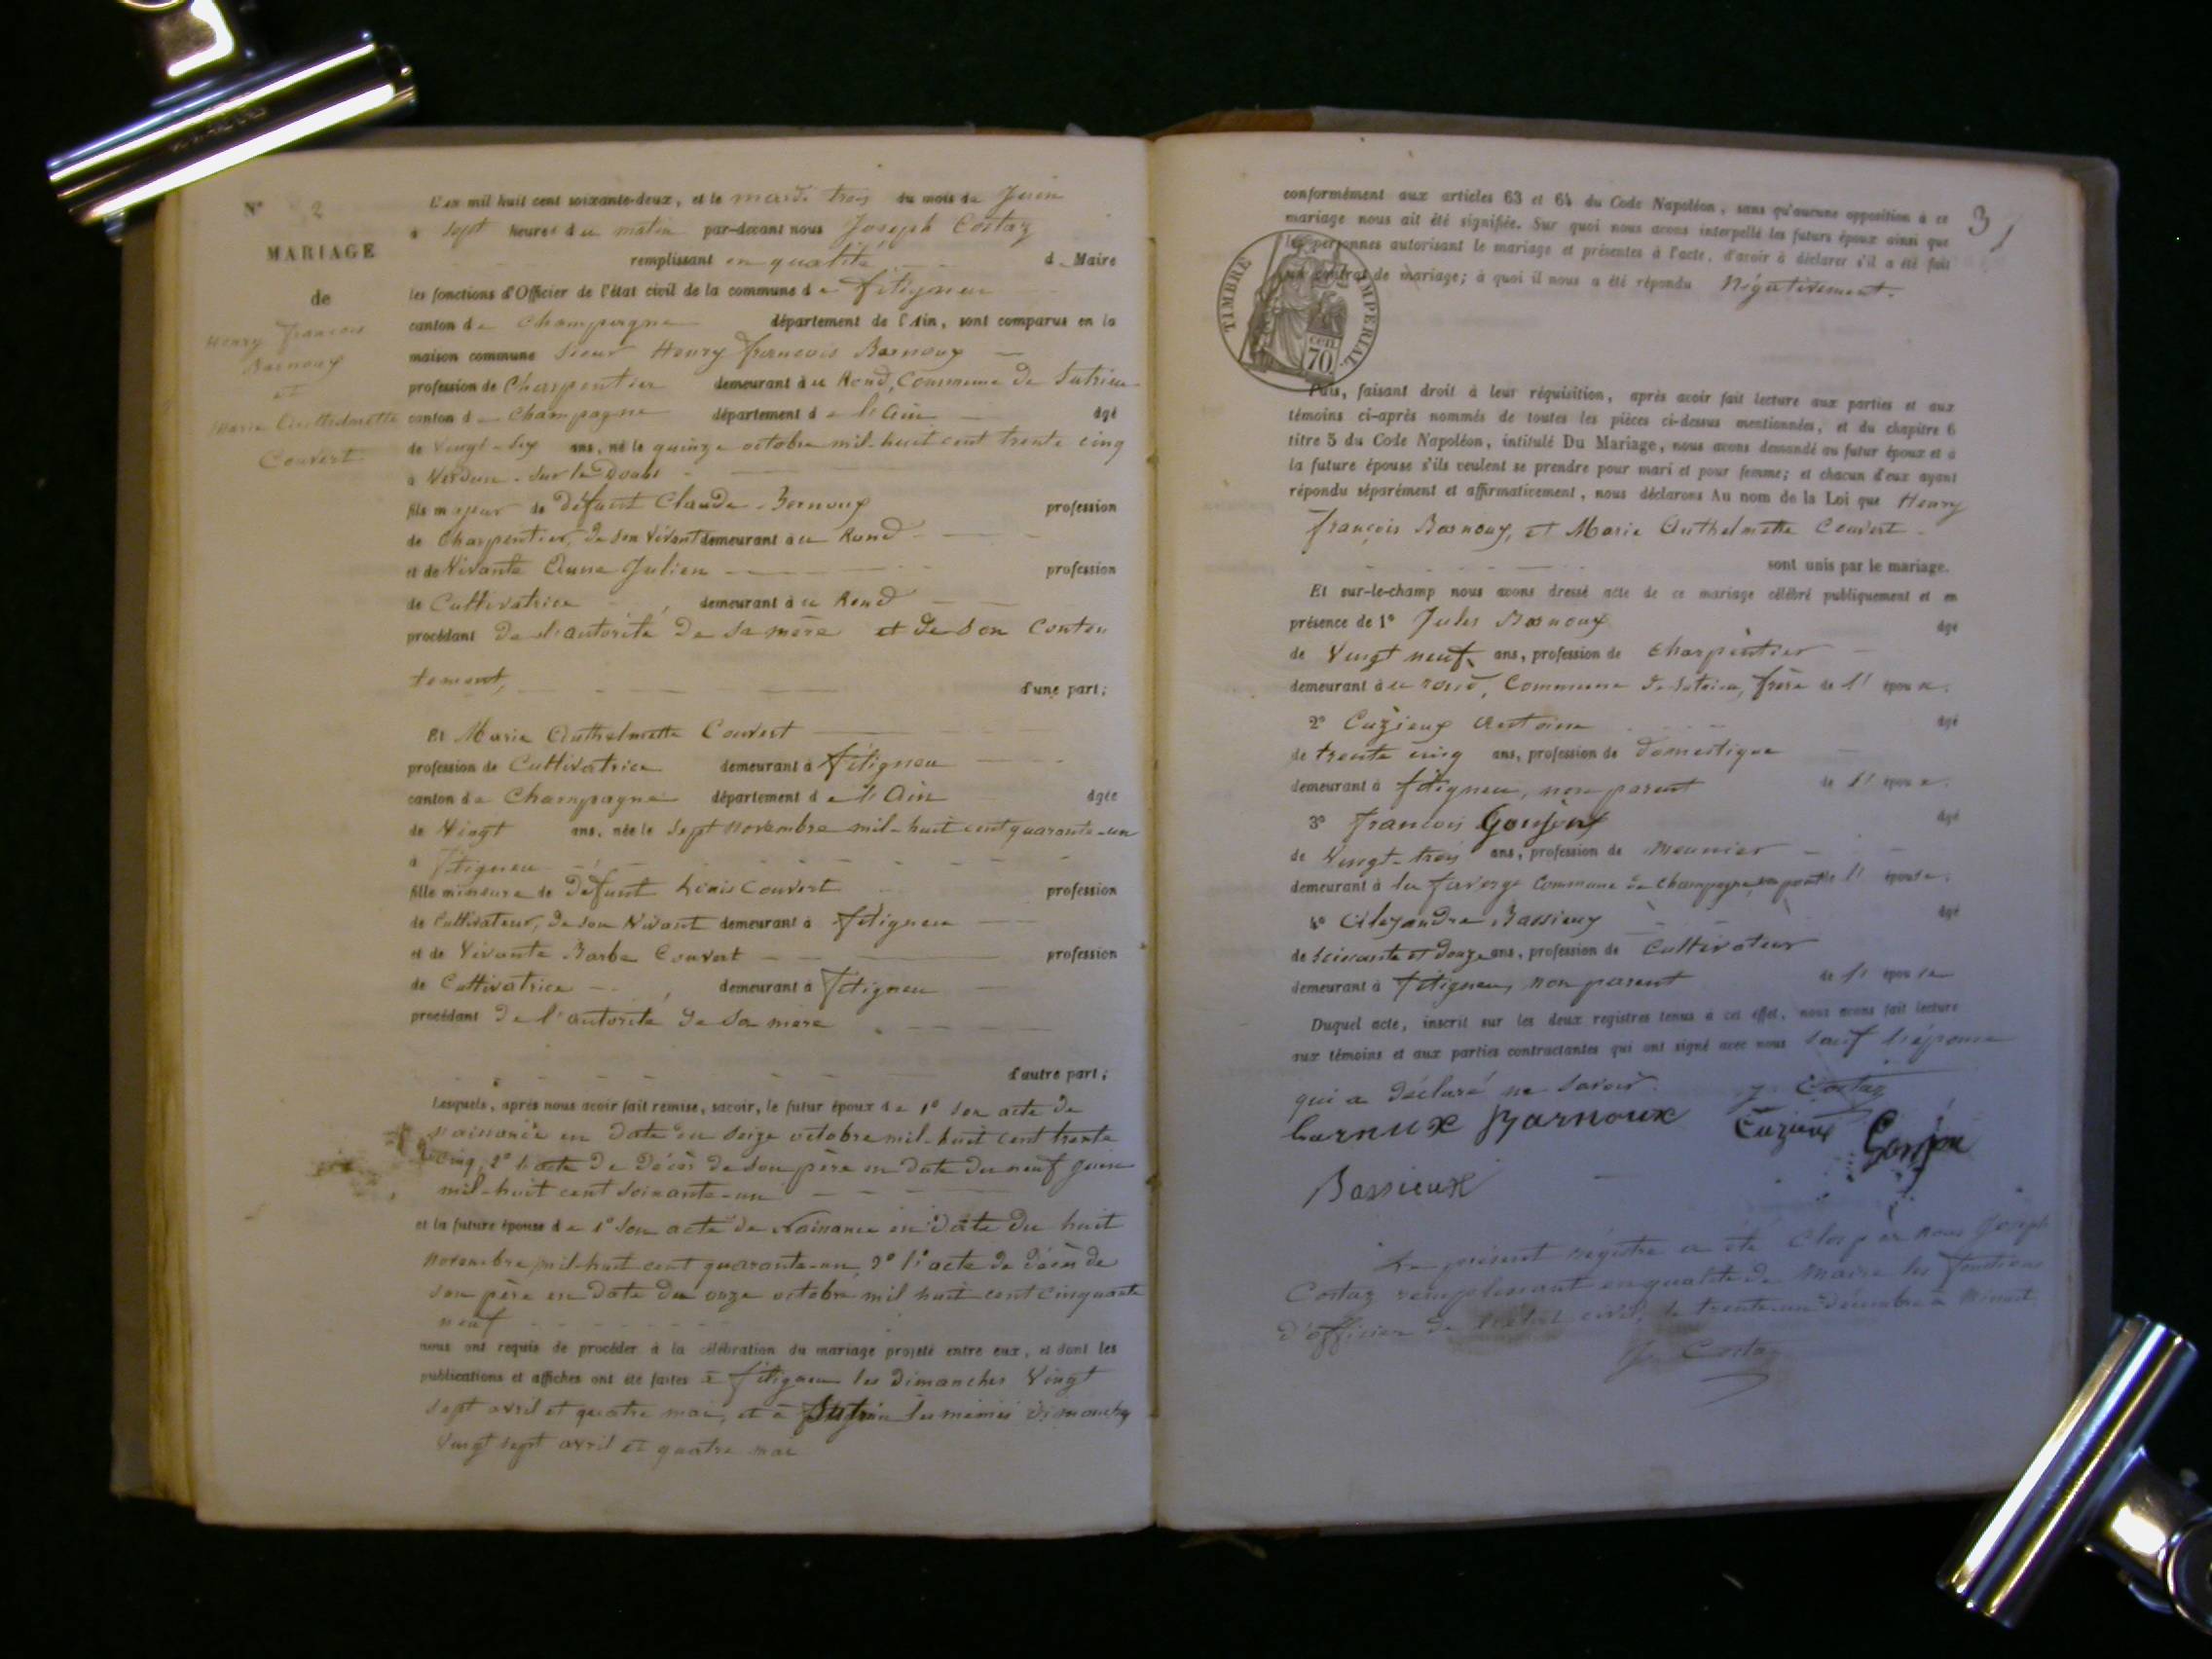 N° 2
MARIAGE
de
Henry François
Barnoux
et
Marie Anthelmette
Couvert
L'an mil huit cent soixante-deux, et le mardi trois du mois de Juin
à sept heures du matin par-devant nous Joseph Costaz
remplissant en qualité d Maire
les fonctions d'Officier de l'état civil de la commune de fitignieu
canton de Champagne département de l'Ain, sont comparus en la
maison commune Sieur Henry françois Barnoux
profession de Charpentier demeurant à u Rond, Commune de Sutrieu
canton de Champagne département de l'Ain âgé
de Vingt-six ans, né le quinze octobre mil-huit cent trente cinq
à Verdun-sur le Doubs
fils majeur de défunt Claude Barnoux profession
de Charpentier, de son Vivant demeurant au Rond
et de Vivante Anne Julien profession
de Cultivatrice demeurant à u Rond
procédant de l'autorité de sa mère et de son conten
tement, d'une part;
Et Marie Anthelmette Couvert
profession de Cultivatrice demeurant à fitignieu
canton de Champagne département de l'Ain âgée
de Vingt ans, née le sept novembre mil-huit cent quarante-un
à fitignieu
fille mineure de défunt Couvert profession
de Cultivateur, de son Vivant demeurant à fitignieu
et de Vivante Barbe Couvert profession
de Cultivatrice demeurant à fitignieu
procédant de l'autorité de sa mère
d'autre part;
Lesquels, après nous avoir fait remise, savoir, le futur époux de 1° son acte de
naissance en date du seize octobre mil-huit cent trente
cinq, 2° l'acte de décès de son père en date du neuf juin
mil-huit cent soixante-un
et la future épouse de 1° son acte de naissance en date du huit
novembre mil-huit cent quarante-un, 2° l'acte de décès de
son père en date du onze octobre mil huit cent cinquante
neuf
nous ont requis de procéder à la célébration du mariage projeté entre eux, et dont les
publications et affiches ont été faites à fitignieu les dimanches Vingt
sept avril et quatre mai, et à Sutrieu les mêmes dimanches
vingt sept avril et quatre mai
31
conformément aux articles 63 et 64 du Code Napoléon, sans qu'aucune opposition à ce
mariage nous ait été signifiée. Sur quoi nous avons interpellé les futurs époux ainsi que
les personnes autorisant le mariage et présentes à l'acte, d'avoir à déclarer s'il a été fait
un contrat de mariage; à quoi il nous a été répondu Négativement.
TIMBRE IMPERIAL
CEN. 70
Puis, faisant droit à leur réquisition, après avoir fait lecture aux parties et aux
témoins ci-après nommés de toutes les pièces ci-dessus mentionnées, et du chapitre 6
titre 5 du Code Napoléon, intitulé Du Mariage, nous avons demandé au futur époux et à
la future épouse s'ils veulent se prendre pour mari et pour femme; et chacun d'eux ayant
répondu séparément et affirmativement, nous déclarons Au nom de la Loi que Henry
françois Barnoux, et Marie Anthelmette Couvert
sont unis par le mariage.
Et sur-le-champ nous avons dressé acte de ce mariage célébré publiquement et en
présence de 1° Jules Barnoux âgé
de Vingt neuf ans, profession de charpentier
demeurant à u rond, Commune de Sutrieu, frère de l'époux.
2° Cuzieux Antoine âgé
de trente cinq ans, profession de domestique
demeurant à fitignieu, non parent de l'épou
3° francois Goujon âgé
de Vingt-trois ans, profession de meunier
demeurant à la faverge Commune de Champagne, non parent de l'épouse.
4° Alexandre Bassieux âgé
de soixante et douze ans, profession de Cultivateur
demeurant à fitignieu, non parent de l'épouse
Duquel acte, inscrit sur les deux registres tenus à cet effet, nous avons fait lecture
aux témoins et aux parties contractantes qui ont signé avec nous sauf l'épouse
qui a déclaré ne savoir. J. Costaz
barnux Barnoux Cuzieux Goujon
Bassieux
Le présent registre a été clos par nous Joseph
Costaz remplissant en qualité de Maire les fonctions
d'officier de l'état civil, le trente-un décembre à Minuit
J. Costaz